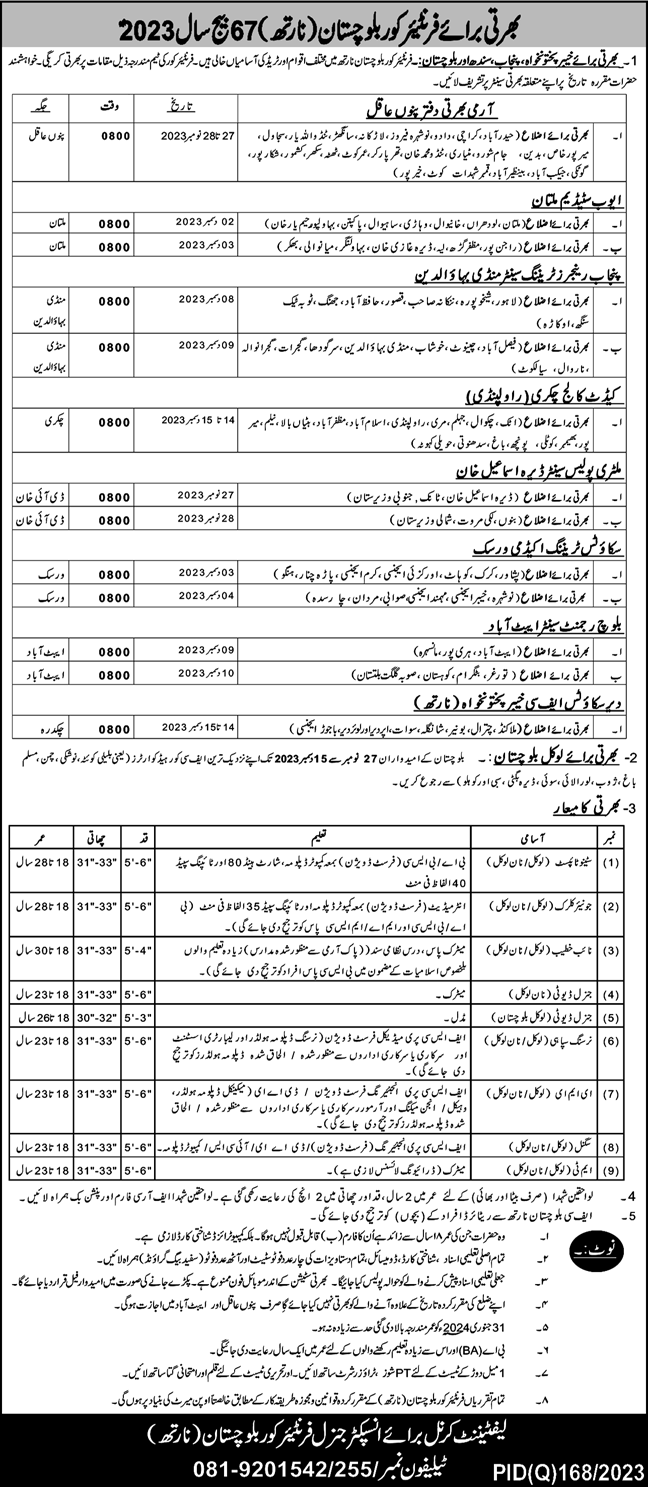 بھرتی برائے فرنٹیئر کور بلوچستان (نارتھ) 67 بیچ سال 2023
1- بھرتی برائے خیبر پختونخواہ، پنجاب، سندھ اور بلوچستان: - فرنٹیئر کور بلوچستان نارتھ میں مختلف اقوام اور ٹریڈ کی آسامیاں خالی ہیں۔ فرنٹیئر کور کی ٹیم مندرجہ ذیل مقامات پر بھرتی کرے گی۔ خواہشمند
حضرات مقررہ تاریخ پر اپنے متعلقہ بھرتی سینٹر پر تشریف لائیں۔
آرمی بھرتی دفتر پنوں عاقل تاریخ وقت جگہ
ا۔ بھرتی برائے اضلاع (حیدرآباد، کراچی، دادو، نوشہرہ فیروز، لاڑکانہ، سانگھڑ، ٹنڈو الہ یار، سجاول، 27 تا 28 نومبر 2023 0800 پنوں عاقل
میرپور خاص، بدین، جام شورو، مٹیاری، ٹنڈو محمد خان، تھرپارکر، عمر کوٹ، ٹھٹہ، سکھر، کشمور، شکارپور،
گھوٹکی، جیکب آباد، بینظیر آباد، قمبر شہداد کوٹ، خیرپور)
ایوب سٹیڈیم ملتان
ا۔ بھرتی برائے اضلاع (ملتان، لودھراں، خانیوال، وہاڑی، ساہیوال، پاکپتن، بہاولپور، رحیم یار خان) 02 دسمبر 2023 0800 ملتان
ب۔ بھرتی برائے اضلاع (راجن پور، مظفر گڑھ، لیہ، ڈیرہ غازی خان، بہاولنگر، میانوالی، بھکر) 03 دسمبر 2023 0800 ملتان
پنجاب رینجرز ٹریننگ سینٹر منڈی بہاؤالدین
ا۔ بھرتی برائے اضلاع (لاہور، شیخوپورہ، ننکانہ صاحب، قصور، حافظ آباد، جھنگ، ٹوبہ ٹیک 08 دسمبر 2023 0800 منڈی
سنگھ، اوکاڑہ) بہاؤالدین
ب۔ بھرتی برائے اضلاع (فیصل آباد، چینوٹ، خوشاب، منڈی بہاؤالدین، سرگودھا، گجرات، گجرانوالہ 09 دسمبر 2023 0800 منڈی
، نارووال، سیالکوٹ) بہاؤالدین
کیڈٹ کالج چکری (راولپنڈی)
ا۔ بھرتی برائے اضلاع (اٹک، چکوال، جہلم، مری، راولپنڈی، اسلام آباد، مظفر آباد، ہٹیاں بالا، نیلم، میر 14 تا 15 دسمبر 2023 0800 چکری
پور، بھمبر، کوٹلی، پونچھ، باغ، سدھنوتی، حویلی کہوٹہ)
ملٹری پولیس سینٹر ڈیرہ اسماعیل خان
ا۔ بھرتی برائے اضلاع (ڈیرہ اسماعیل خان، ٹانک، جنوبی وزیرستان) 27 نومبر 2023 0800 ڈی آئی خان
ب۔ بھرتی برائے اضلاع (بنوں، لکی مروت، شمالی وزیرستان) 28 نومبر 2023 0800 ڈی آئی خان
سکاؤٹس ٹریننگ اکیڈمی ورسک
ا۔ بھرتی برائے اضلاع (پشاور، کرک، کوہاٹ، اورکزئی ایجنسی، کرم ایجنسی، پاڑہ چنار، ہنگو) 03 دسمبر 2023 0800 ورسک
ب۔ بھرتی برائے اضلاع (نوشہرہ، خیبر ایجنسی، مہمند ایجنسی، صوابی، مردان، چارسدہ) 04 دسمبر 2023 0800 ورسک
بلوچ رجمنٹ سینٹر ایبٹ آباد
ا۔ بھرتی برائے اضلاع (ایبٹ آباد، ہری پور، مانسہرہ) 09 دسمبر 2023 0800 ایبٹ آباد
ب بھرتی برائے اضلاع (تورغر، بٹگرام، کوہستان، صوبہ گلگت بلتستان) 10 دسمبر 2023 0800 ایبٹ آباد
دیر سکاؤٹس ایف سی خیبر پختونخواہ (نارتھ)
ا۔ بھرتی برائے اضلاع (ملاکنڈ، چترال، بونیر، شانگلہ، سوات، اپر دیر اور لوئر دیر، باجوڑ ایجنسی) 14 تا 15 دسمبر 2023 0800 چکدرہ
2- بھرتی برائے لوکل بلوچستان: - بلوچستان کے امیدواران 27 نومبر سے 15 دسمبر 2023 تک اپنے نزدیک ترین ایف سی کور ہیڈ کوارٹرز (یعنی بلیلی کوئٹہ، نوشکی، چمن، مسلم
باغ، ژوب، لورالائی، سوئی، ڈیرہ بگٹی، سبی اور کوہلو) سے رجوع کریں۔
3- بھرتی کا معیار
نمبر آسامی تعلیم قد چھاتی عمر
(1) سٹینو ٹائپسٹ (لوکل / نان لوکل) بی اے / بی ایس سی (فرسٹ ڈویژن) بمعہ کمپیوٹر ڈپلومہ، شارٹ ہینڈ 80 اور ٹائپنگ سپیڈ 5'-6" 31"-33" 18 تا 28 سال
40 الفاظ فی منٹ
(2) جونیئر کلرک (لوکل / نان لوکل) انٹرمیڈیٹ (فرسٹ ڈویژن) بمعہ کمپیوٹر ڈپلومہ اور ٹائپنگ سپیڈ 35 الفاظ فی منٹ (بی 5'-6" 31"-33" 18 تا 28 سال
اے / بی ایس سی اور ایم اے / ایم ایس سی پاس کو ترجیح دی جائے گی)۔
(3) نائب خطیب (لوکل / نان لوکل) میٹرک پاس، درس نظامی سند (پاک آرمی سے منظور شدہ مدارس) زیادہ تعلیم والوں 5'-4" 31"-33" 18 تا 30 سال
بلخصوص اسلامیات کے مضمون میں بی ایس سی پاس افراد کو ترجیح دی جائے گی)۔
(4) جنرل ڈیوٹی (نان لوکل) میٹرک۔ 5'-6" 31"-33" 18 تا 23 سال
(5) جنرل ڈیوٹی (لوکل بلوچستان) مڈل۔ 5'-3" 30"-32" 18 تا 26 سال
(6) نرسنگ سپاہی (لوکل / نان لوکل) ایف ایس سی پری میڈیکل فرسٹ ڈویژن (نرسنگ ڈپلومہ ہولڈر اور لیبارٹری اسسٹنٹ 5'-6" 31"-33" 18 تا 23 سال
اور سرکاری یا سرکاری اداروں سے منظور شدہ / الحاق شدہ ڈپلومہ ہولڈرز کو ترجیح
دی جائے گی)۔
(7) ای ایم ای (لوکل / نان لوکل) ایف ایس سی پری انجینئرنگ فرسٹ ڈویژن / ڈی اے ای (میکینکل ڈپلومہ ہولڈر، 5'-6" 31"-33" 18 تا 23 سال
وہیکل / انجن میکنگ اور آرمورر سرکاری یا سرکاری اداروں سے منظور شدہ / الحاق
شدہ ڈپلومہ ہولڈرز کو ترجیح دی جائے گی)۔
(8) سگنل (لوکل / نان لوکل) ایف ایس سی پری انجینئرنگ (فرسٹ ڈویژن) / ڈی اے ای / آئی سی ایس / کمپیوٹر ڈپلومہ۔ 5'-6" 31"-33" 18 تا 23 سال
(9) ایم ٹی (لوکل / نان لوکل) میٹرک (ڈرائیونگ لائسنس لازمی ہے)۔ 5'-6" 31"-33" 18 تا 23 سال
4- لواحقین شہدا (صرف بیٹا اور بھائی) کے لئے عمر میں 2 سال، قد اور چھاتی میں 2 انچ کی رعایت رکھی گئی ہے۔ لواحقین شہدا ایف آر سی فارم اور پنشن بک ہمراہ لائیں۔
5- ایف سی بلوچستان نارتھ سے ریٹائرڈ افراد کے (بچوں) کو ترجیح دی جائے گی۔
نوٹ:-
۱۔ وہ حضرات جن کی عمر ۱۸ سال سے زائد ہے ان کا فارم (ب) قابل قبول نہیں ہوگا۔ بلکہ کمپیوٹرائزڈ شناختی کارڈ لازمی ہے۔
۲۔ تمام اصلی تعلیمی اسناد، شناختی کارڈ، ڈومیسائل، تمام دستاویزات کی چار عدد فوٹو سٹیٹ اور آٹھ عدد فوٹو (سفید بیک گراؤنڈ) ہمراہ لائیں۔
۳۔ جعلی تعلیمی اسناد پیش کرنے والے کو حوالہ پولیس کیا جائیگا۔ بھرتی سٹیشن کے اندر موبائل فون ممنوع ہے۔ پکڑے جانے کی صورت میں امیدوار فیل قرار دیا جائے گا۔
۴۔ اپنے ضلع کی مقرر کردہ تاریخ کے علاوہ آنے والے کو بھرتی نہیں کیا جائے گا صرف پنوں عاقل اور ایبٹ آباد میں اجازت ہوگی۔
۵۔ 31 جنوری 2024 کو عمر مندرجہ بالا دی گئی حد سے زیادہ نہ ہو۔
۶۔ بی اے (BA) اور اس سے زیادہ تعلیم رکھنے والوں کے لئے عمر میں ایک سال رعایت دی جائیگی۔
۷۔ 1 میل دوڑ کے ٹیسٹ کے لئے PT شوز، ٹراؤزر شرٹ ساتھ لائیں۔ اور تحریری ٹیسٹ کے لئے قلم اور امتحانی گتا ساتھ لائیں۔
۸۔ تمام تقرریاں فرنٹیئر کور بلوچستان (نارتھ) کے مقرر کردہ قوانین و مجوزہ طریقہ کار کے مطابق خالصتاً اوپن میرٹ کی بنیاد پر ہوں گی۔
لیفٹیننٹ کرنل برائے انسپکٹر جنرل فرنٹیئر کور بلوچستان (نارتھ)
ٹیلیفون نمبر / 081-9201542/255
PID(Q)168/2023